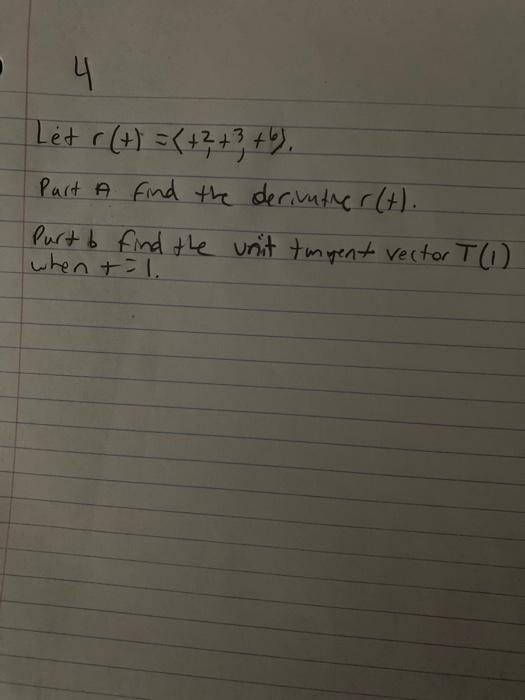 4
Let r(t) = ⟨t², t³, t⁶⟩.
Part A find the derivative r(t).
Part b find the unit tangent vector T(1)
when t = 1.